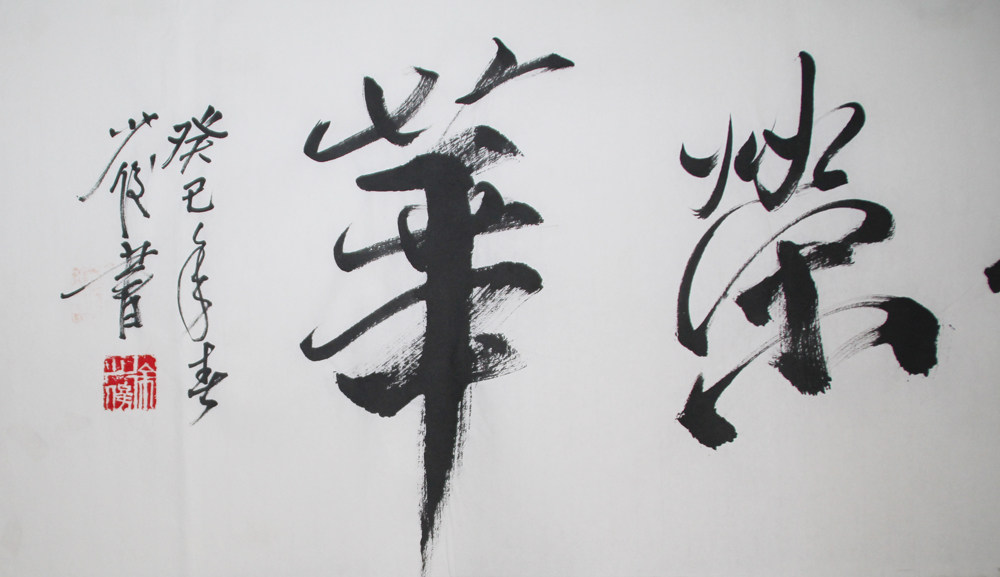 榮華
癸巳年春
少俊書